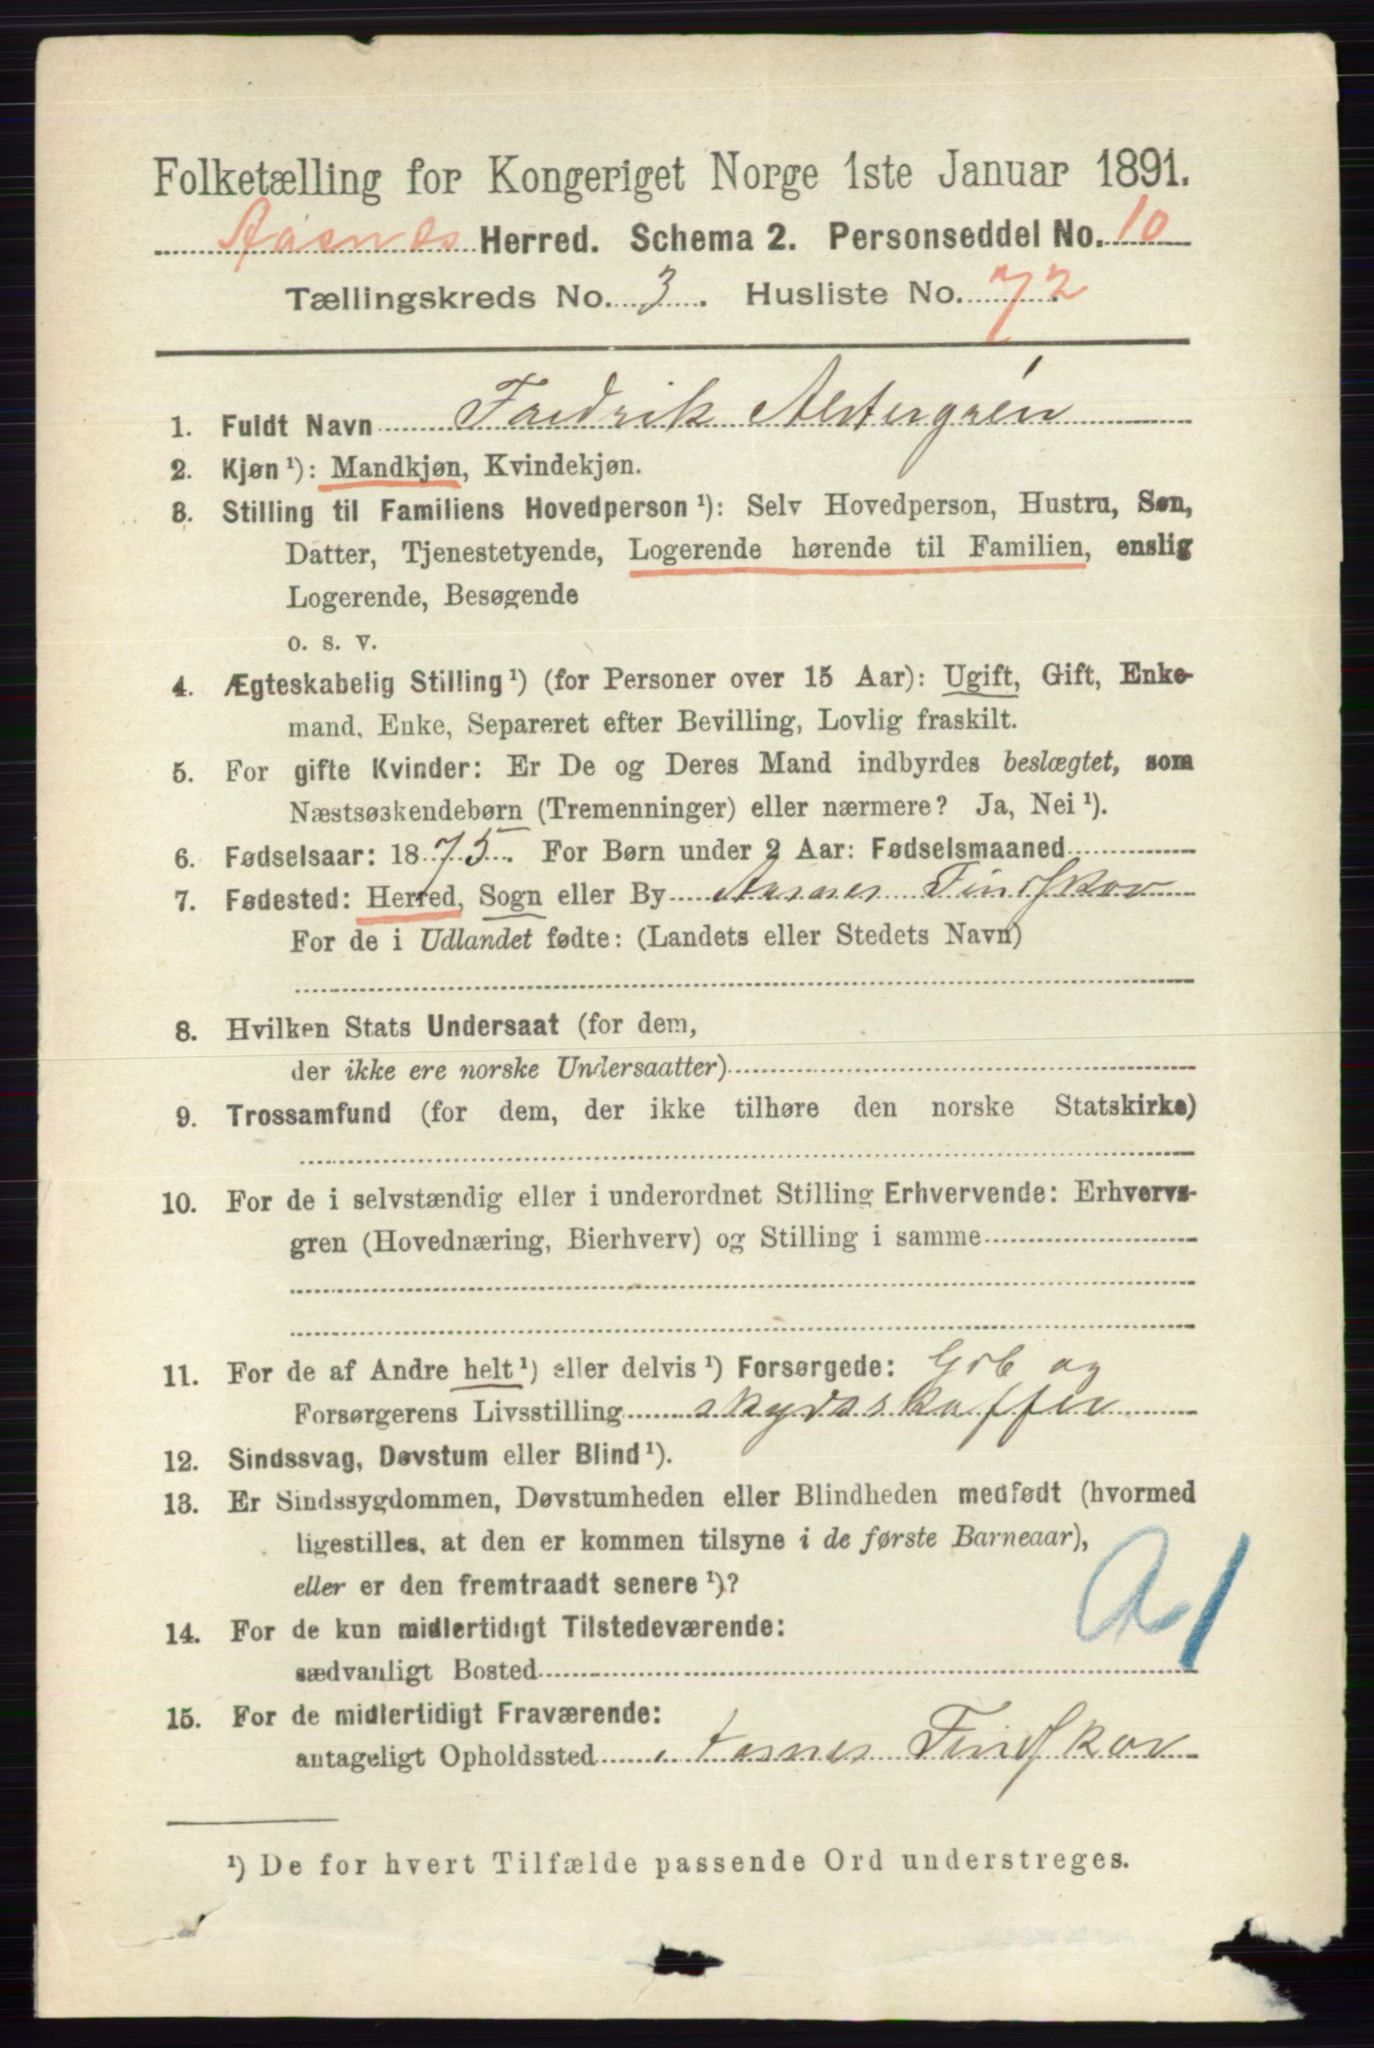 Folketælling for Kongeriget Norge 1ste Januar 1891.
Aasnes Herred. Schema 2. Personseddel No. 10
Tællingskreds No. 3. Husliste No. 72
1. Fuldt Navn Fredrik Alstergrén
2. Kjøn ¹): Mandkjøn, Kvindekjøn.
3. Stilling til Familiens Hovedperson ¹): Selv Hovedperson, Hustru, Søn,
Datter, Tjenestetyende, Logerende hørende til Familien, enslig
Logerende, Besøgende
o. s. v.
4. Ægteskabelig Stilling ¹) (for Personer over 15 Aar): Ugift, Gift, Enke-
mand, Enke, Separeret efter Bevilling, Lovlig fraskilt.
5. For gifte Kvinder: Er De og Deres Mand indbyrdes beslægtet, som
Næstsøskendebørn (Tremenninger) eller nærmere? Ja, Nei ¹).
6. Fødselsaar: 1875. For Børn under 2 Aar: Fødselsmaaned
7. Fødested: Herred, Sogn eller By Aasnes Findskov
For de i Udlandet fødte: (Landets eller Stedets Navn)
8. Hvilken Stats Undersaat (for dem,
der ikke ere norske Undersaatter)
9. Trossamfund (for dem, der ikke tilhøre den norske Statskirke)
10. For de i selvstændig eller i underordnet Stilling Erhvervende: Erhvervs-
gren (Hovednæring, Bierhverv) og Stilling i samme
11. For de af Andre helt ¹) eller delvis ¹) Forsørgede: Gdb og
Forsørgerens Livsstilling skydsskaffer
12. Sindssvag, Døvstum eller Blind ¹).
13. Er Sindssygdommen, Døvstumheden eller Blindheden medfødt (hvormed
ligestilles, at den er kommen tilsyne i de første Barneaar),
eller er den fremtraadt senere ¹)?
14. For de kun midlertidigt Tilstedeværende:
sædvanligt Bosted
15. For de midlertidigt Fraværende:
antageligt Opholdssted Aasnes Findskov
¹) De for hvert Tilfælde passende Ord understreges.